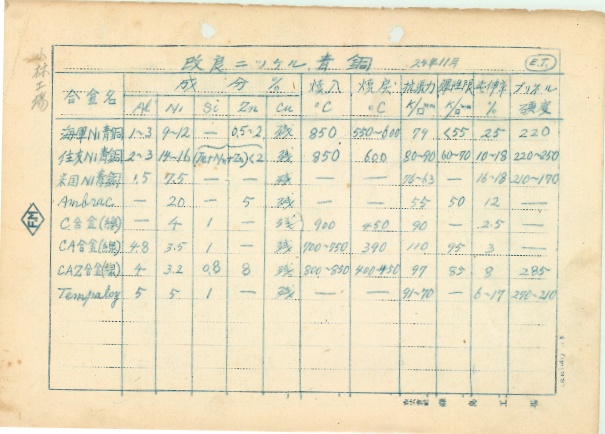 改良ニッケル青銅 24年11月 E.T.
小林工場
合金名 成分% 焼入 焼戻 抗張力 弾性限 延伸率 ブリネル
Al Ni Si Zn Cu °C °C K/□mm K/□mm % 硬度
海軍Ni青銅 1~3 9~12 — 0.5~2 残 850 550~600 79 <55 25 220
住友Ni青銅 2~3 14~16 (Fe+Mn+Zn)<2 残 850 600 80~90 60~70 10~18 220~250
米国Ni青銅 1.5 7.5 — — 残 — — 76~63 — 16~18 210~170
Ambrac — 20 — 5 残 — — 55 50 12 —
C合金(線) — 4 1 — 残 900 450 90 — 2.5 —
CA合金(線) 4.8 3.5 1 — 残 700~750 390 110 95 3 —
CAZ合金(線) 4 3.2 0.8 8 残 800~850 400~450 97 85 8 285
Tempaloy 5 5 1 — 残 — — 91~70 — 6~17 290~210
FM